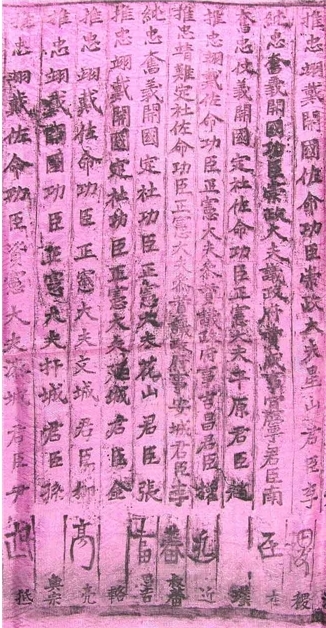 推忠翊戴佐命功臣崇政大夫星山君臣李稷
純忠奮義開國功臣崇政大夫議政府贊成事宜寧君臣南在
奮忠仗義開國定社佐命功臣正憲大夫平原君臣趙璞
推忠翊戴佐命功臣正憲大夫參贊議政府事吉昌君臣權近
推忠靖難定社佐命功臣正憲大夫參贊議政府事安城君臣李叔蕃
純忠奮義開國定社功臣正憲大夫花山君臣張思吉
推忠翊戴開國定社功臣正憲大夫蓮城君臣金輅
推忠翊戴佐命功臣正憲大夫文城君臣柳亮
推忠翊戴開國功臣正憲大夫城君臣孫興宗
推忠翊戴佐命功臣資憲大夫漆城君臣尹抵